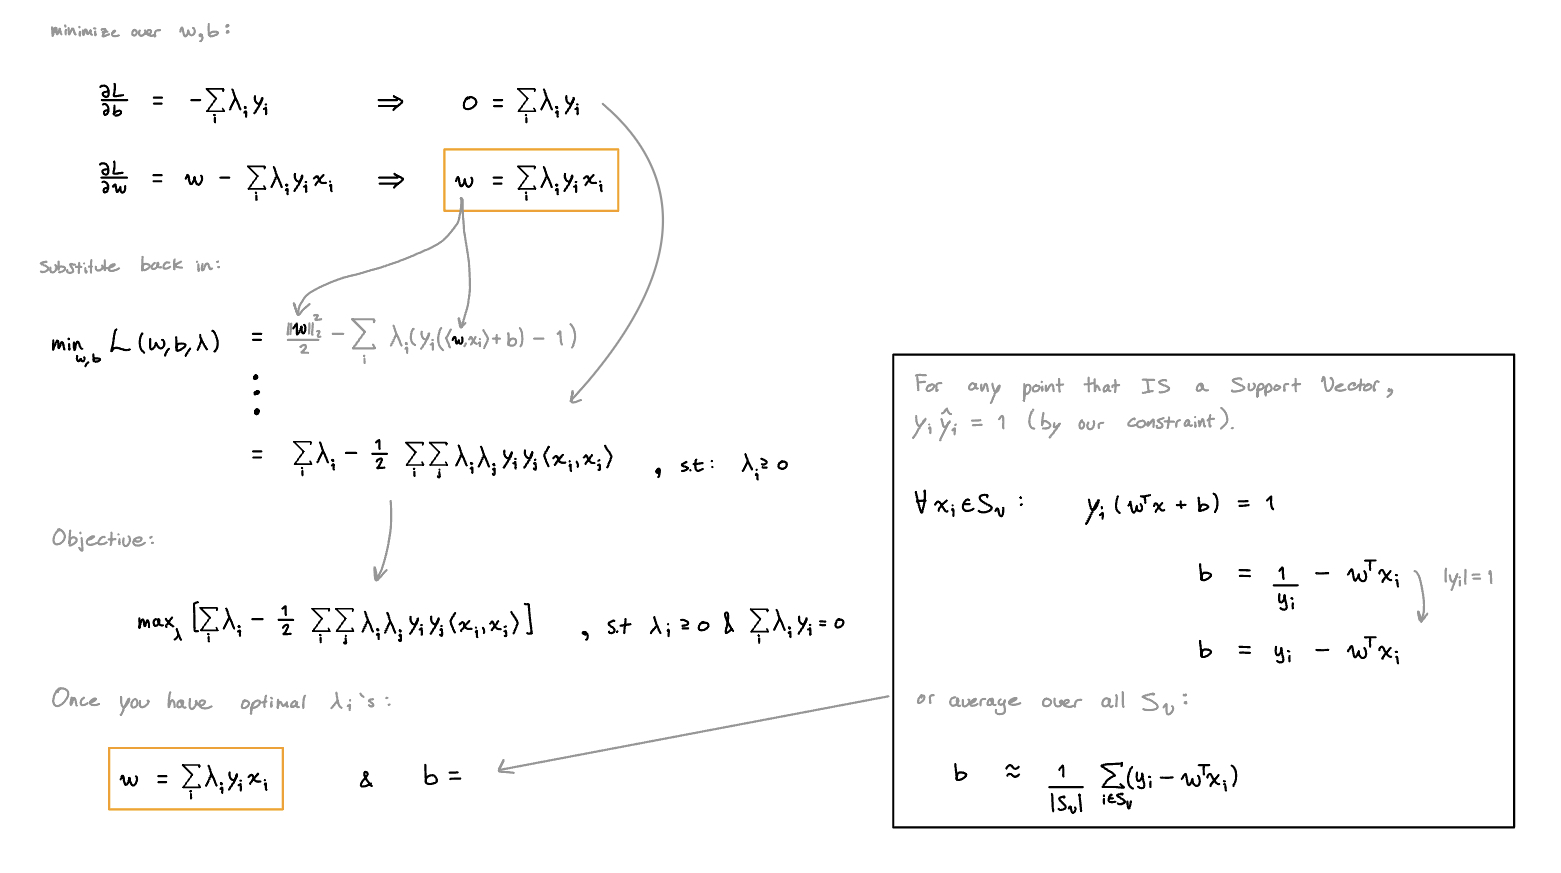 minimize over w,b:
∂L/∂b = -∑_i λ_i y_i ⇒ 0 = ∑_i λ_i y_i
∂L/∂w = w - ∑_i λ_i y_i x_i ⇒ w = ∑_i λ_i y_i x_i
Substitute back in:
min_{w,b} L(w,b,λ) = ||w||_2^2/2 - ∑_i λ_i(y_i(⟨w,x_i⟩+b) - 1)
⋮
= ∑_i λ_i - 1/2 ∑_i ∑_j λ_i λ_j y_i y_j ⟨x_i,x_j⟩ , s.t: λ_i ≥ 0
Objective:
max_λ [∑_i λ_i - 1/2 ∑_i ∑_j λ_i λ_j y_i y_j ⟨x_i,x_j⟩] , s.t λ_i ≥ 0 & ∑_i λ_i y_i = 0
Once you have optimal λ_i's:
w = ∑_i λ_i y_i x_i & b =
For any point that IS a Support Vector,
y_i ŷ_i = 1 (by our constraint).
∀ x_i ∈ S_v : y_i (w^T x + b) = 1
b = 1/y_i - w^T x_i |y_i| = 1
b = y_i - w^T x_i
or average over all S_v:
b ≈ 1/|S_v| ∑_{i∈S_v} (y_i - w^T x_i)